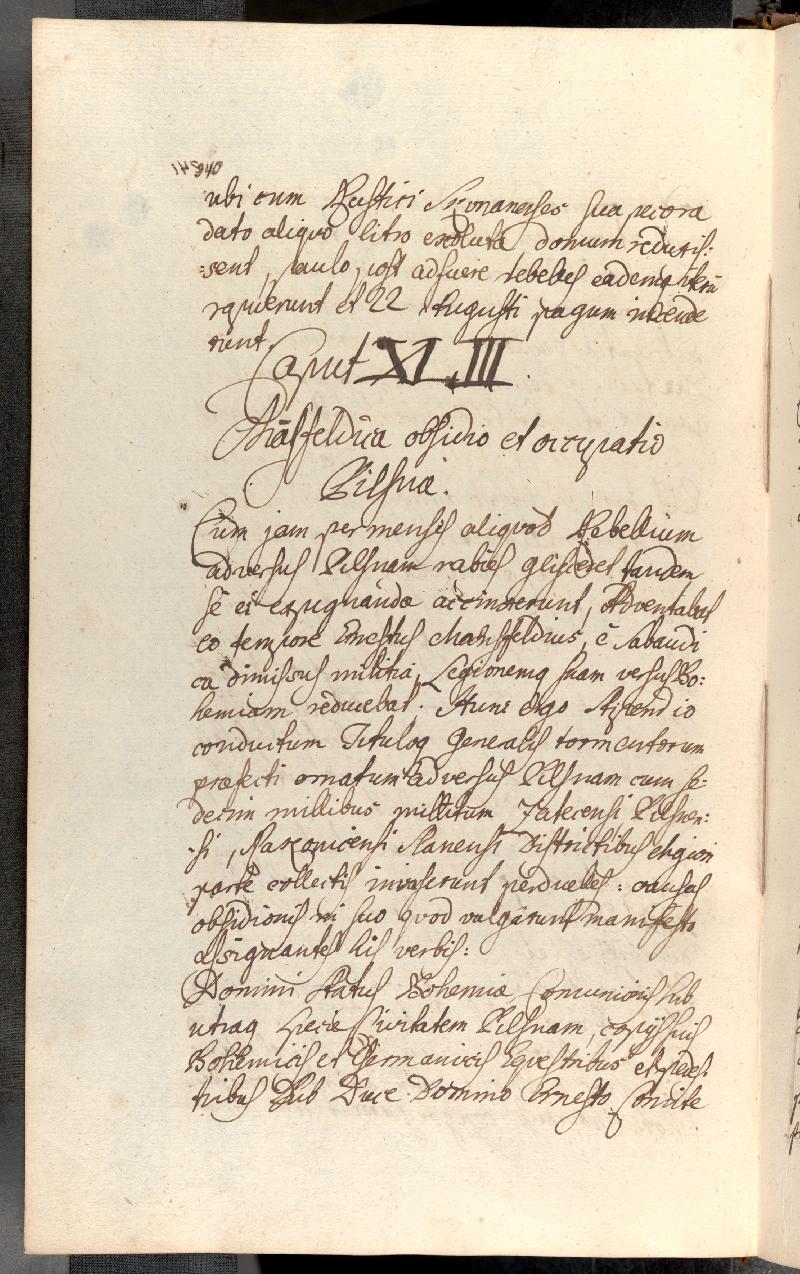 940
ubi cum Rustici sua pecora
dato aliquo litro exoluta domum reduxis:
:sent, paulo post adfuere rebelles eademq iterũ
rapuerunt et 22 Augusti pagum incende
runt.
Caput XLIII
Mãsfeldica obsidio et occupatio
Pilsnæ.
Cum jam per menses aliquod Rebellium
adversus Pilsnam rabies glisceret tandem
se ei expugnandæ accinxerunt, Adventabat
eo tempore Ernestus Mansfeldius, è Sabaudi
ca dimissus militia, Legionemq suam versus Bo:
hemiam reducebat. Hunc ergo Stipendio
conductum Tituloq Generalis tormentorum
præfecti ornatum adversus Pilsnam cum se:
decim millibus militum Zatecensi Pilsnen:
:si, Raconicensi Slanensi Districtibus
parte collectis invaserunt perduelles: causas
obsidionis in suo quod vulgarunt manifesto
assignantes his verbis:
Domini Status Bohemiæ Comunionis sub
utraq specie Civitatem Pilsnam, copijs suis
Bohemicis et Germanicis Equestribus et pedes:
tribus Sub Duce Domino Ernesto Comite